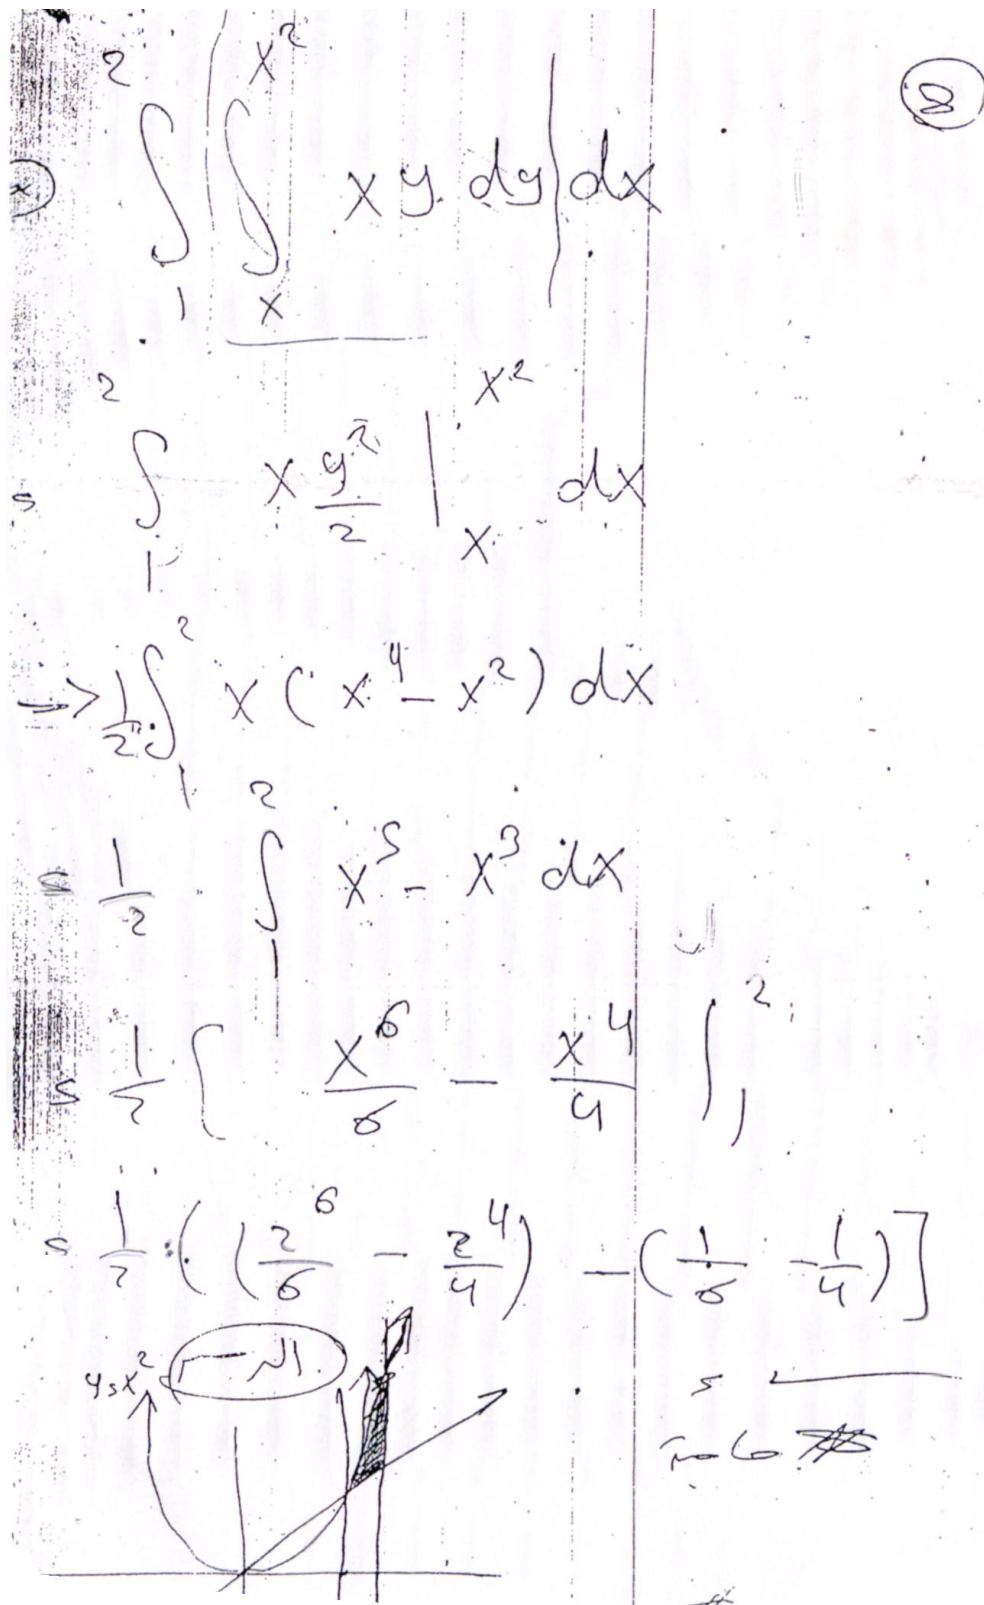 ∫₁² ∫ₓ^(x²) x y dy dx
= ∫₁² x y²/2 |ₓ^(x²) dx
=> 1/2 ∫₁² x (x⁴ - x²) dx
= 1/2 ∫₁² x⁵ - x³ dx
= 1/2 [ x⁶/6 - x⁴/4 ]₁²
= 1/2 ( ( 2⁶/6 - 2⁴/4 ) - ( 1/6 - 1/4 ) ]
y = x²
=